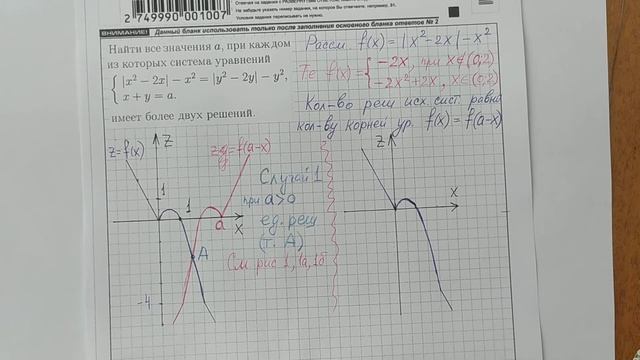 2 749990 001007
Ответы на задания с РАЗВЕРНУТЫМ
Не забудьте указать номер задания, на которое Вы отвечаете, например, 31.
Условия задания переписывать не нужно.
ВНИМАНИЕ! Данный бланк использовать только после заполнения основного бланка ответов № 2
Найти все значения a, при каждом
из которых система уравнений
{ |x² − 2x| − x² = |y² − 2y| − y²,
x + y = a.
имеет более двух решений.
Рассм. f(x) = |x²-2x| - x²
Те f(x) = { -2x, при x∉(0;2)
-2x²+2x, x∈(0;2)
Кол-во реш исх. сист. равно
кол-ву корней ур. f(x) = f(a-x)
z=f(x)
z
z=f(a-x)
1
1
a
x
A
-4
Случай 1
при a>0
ед. реш
(т. A)
См рис 1, 1а, 1б
z
x